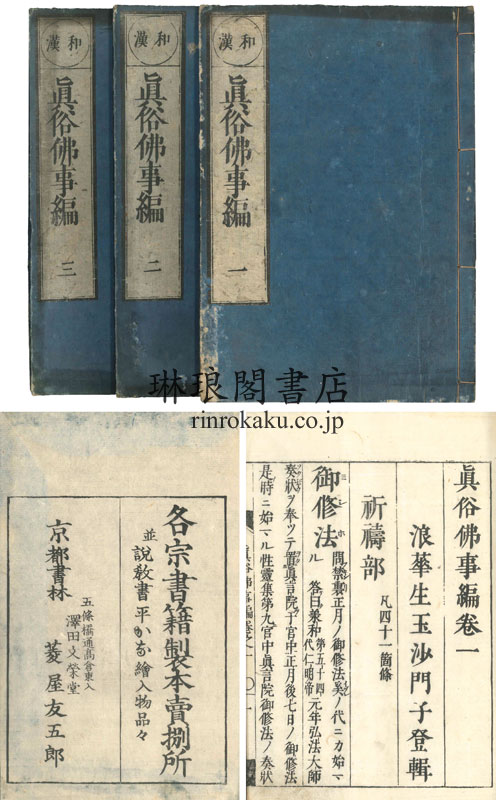 和漢
眞俗佛事編 一
和漢
眞俗佛事編 二
和漢
眞俗佛事編 三
琳琅閣書店
rinrokaku.co.jp
眞俗佛事編卷一
浪華生玉沙門子登輯
祈禱部 凡四十一箇條
御修法 問禁裏正月ノ御修法ノ代ニカ始マ
ル 答曰承和第五十四代仁明帝元年弘法大師
奏狀ヲ奉ツテ置眞言院于宮中正月後七日ノ御修法
是時ニ始マル性靈集第九宮中眞言院御修法ノ奏狀
眞俗佛事編卷之一 〇一
各宗書籍製本賣捌所
並説敎書平かな繪入物品々
五條橋通高倉東入
澤田文榮堂
京都書林 菱屋友五郎